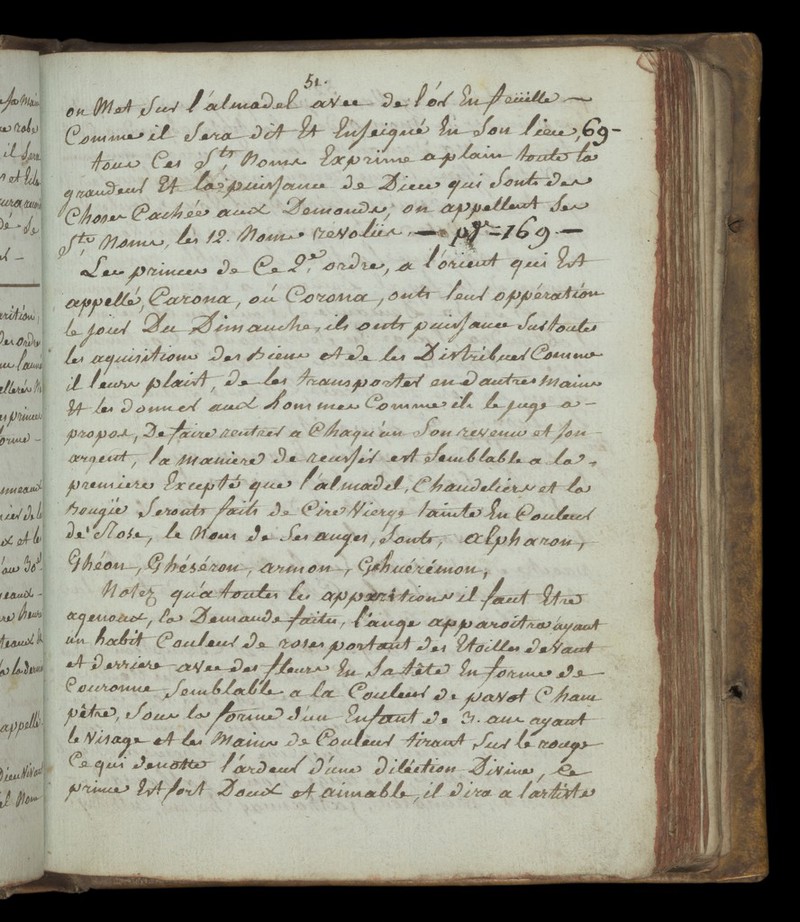 51.
on Met Sur l'almadel avec de l'ór En feüille —
Comme il Sera dit Et Enseigné En Son lieu, 69-
tous Ces Sts. Noms Exprime a plain toute la
grandeur Et la puissance de Dieu qui Sonts des
Choses Cachée aux Demonds; on appellent Ses
Sts. Noms, les 12. Noms revolies. — pge = 169 —
Les princes de Ce 2e. ordre, a l'orient qui Est
appellé, Carona, oú Corona, onts leur oppération
le jour Du Dimanche, ils onts puissance Sur toutes
les aquisitions des Biens et de les Distribuer Comme
il leurs plaist, de les transporter en d'autres mains
Et les donner aux hommes Comme ils le juge a-
propos, De faire rentrer a Chaqu'un Son revenu et son
argent, la maniere de reussir est Semblable a la
premiere Excepté que l'almadel, Chandeliers et la
Bougïe Seronts faits de Cire Vierge tainte En Couleur
de Rose, le Nom de Ses anges, Sonts, alpharon,
Ghéon, Ghéséron, armon, Gehuérémon,
Notez qu'a toutes les apparitions il faut Etre
agenoux, la Demande faite, l'ange apparoitra ayant
un habit Couleur de roses portant des Etoilles devant
et derriere avec des fleurs En Sa tête En forme de
Couronne Semblable a la Couleur de pavot Cham
pêtre, Sous la forme d'un Enfant de 3. ans ayant
le Visage et les Mains de Couleur tirant Sur le rouge
Ce qui denotte l'ardeur d'une diléction Divine, Ce
prince Est fort Doux et aimable, il dira a l'artiste